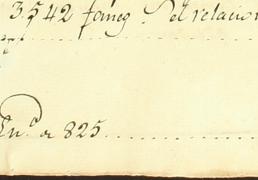 3542 faneg.s el relacion
En.o de 825